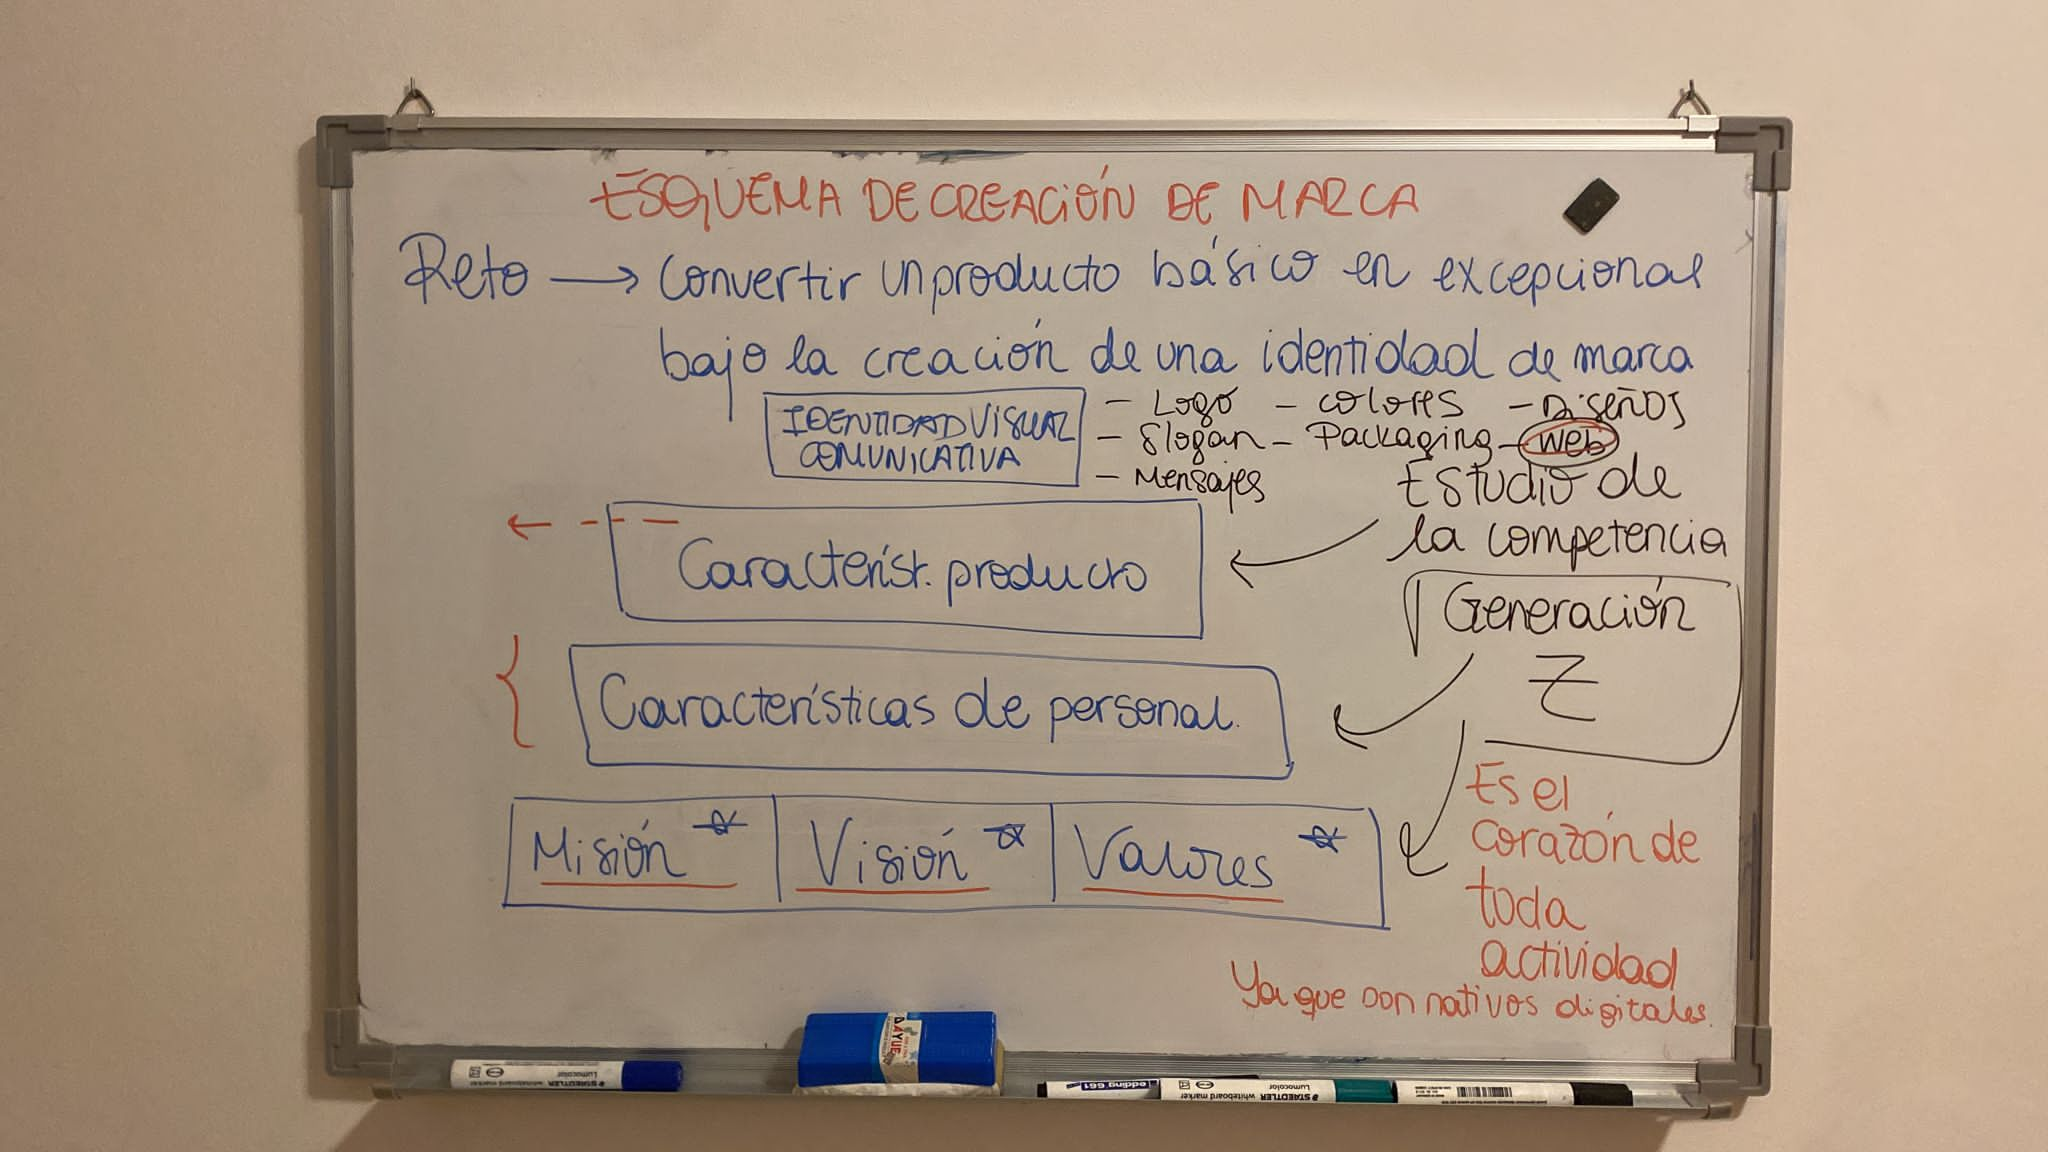 ESQUEMA DE CREACIÓN DE MARCA
Reto → Convertir un producto básico en excepcional
bajo la creación de una identidad de marca
IDENTIDAD VISUAL
COMUNICATIVA
- Logo - colores - DISEÑOS
- Slogan - Packaging - web
- Mensajes
Estudio de
la competencia
Característ. producto
Generación
Z
Características de personal.
Misión Visión Valores
Es el
corazón de
toda
actividad
Ya que son nativos digitales.
DAYUE
STAEDTLER
Lumocolor
whiteboard marker
edding 661
STAEDTLER
Lumocolor
whiteboard marker
STAEDTLER